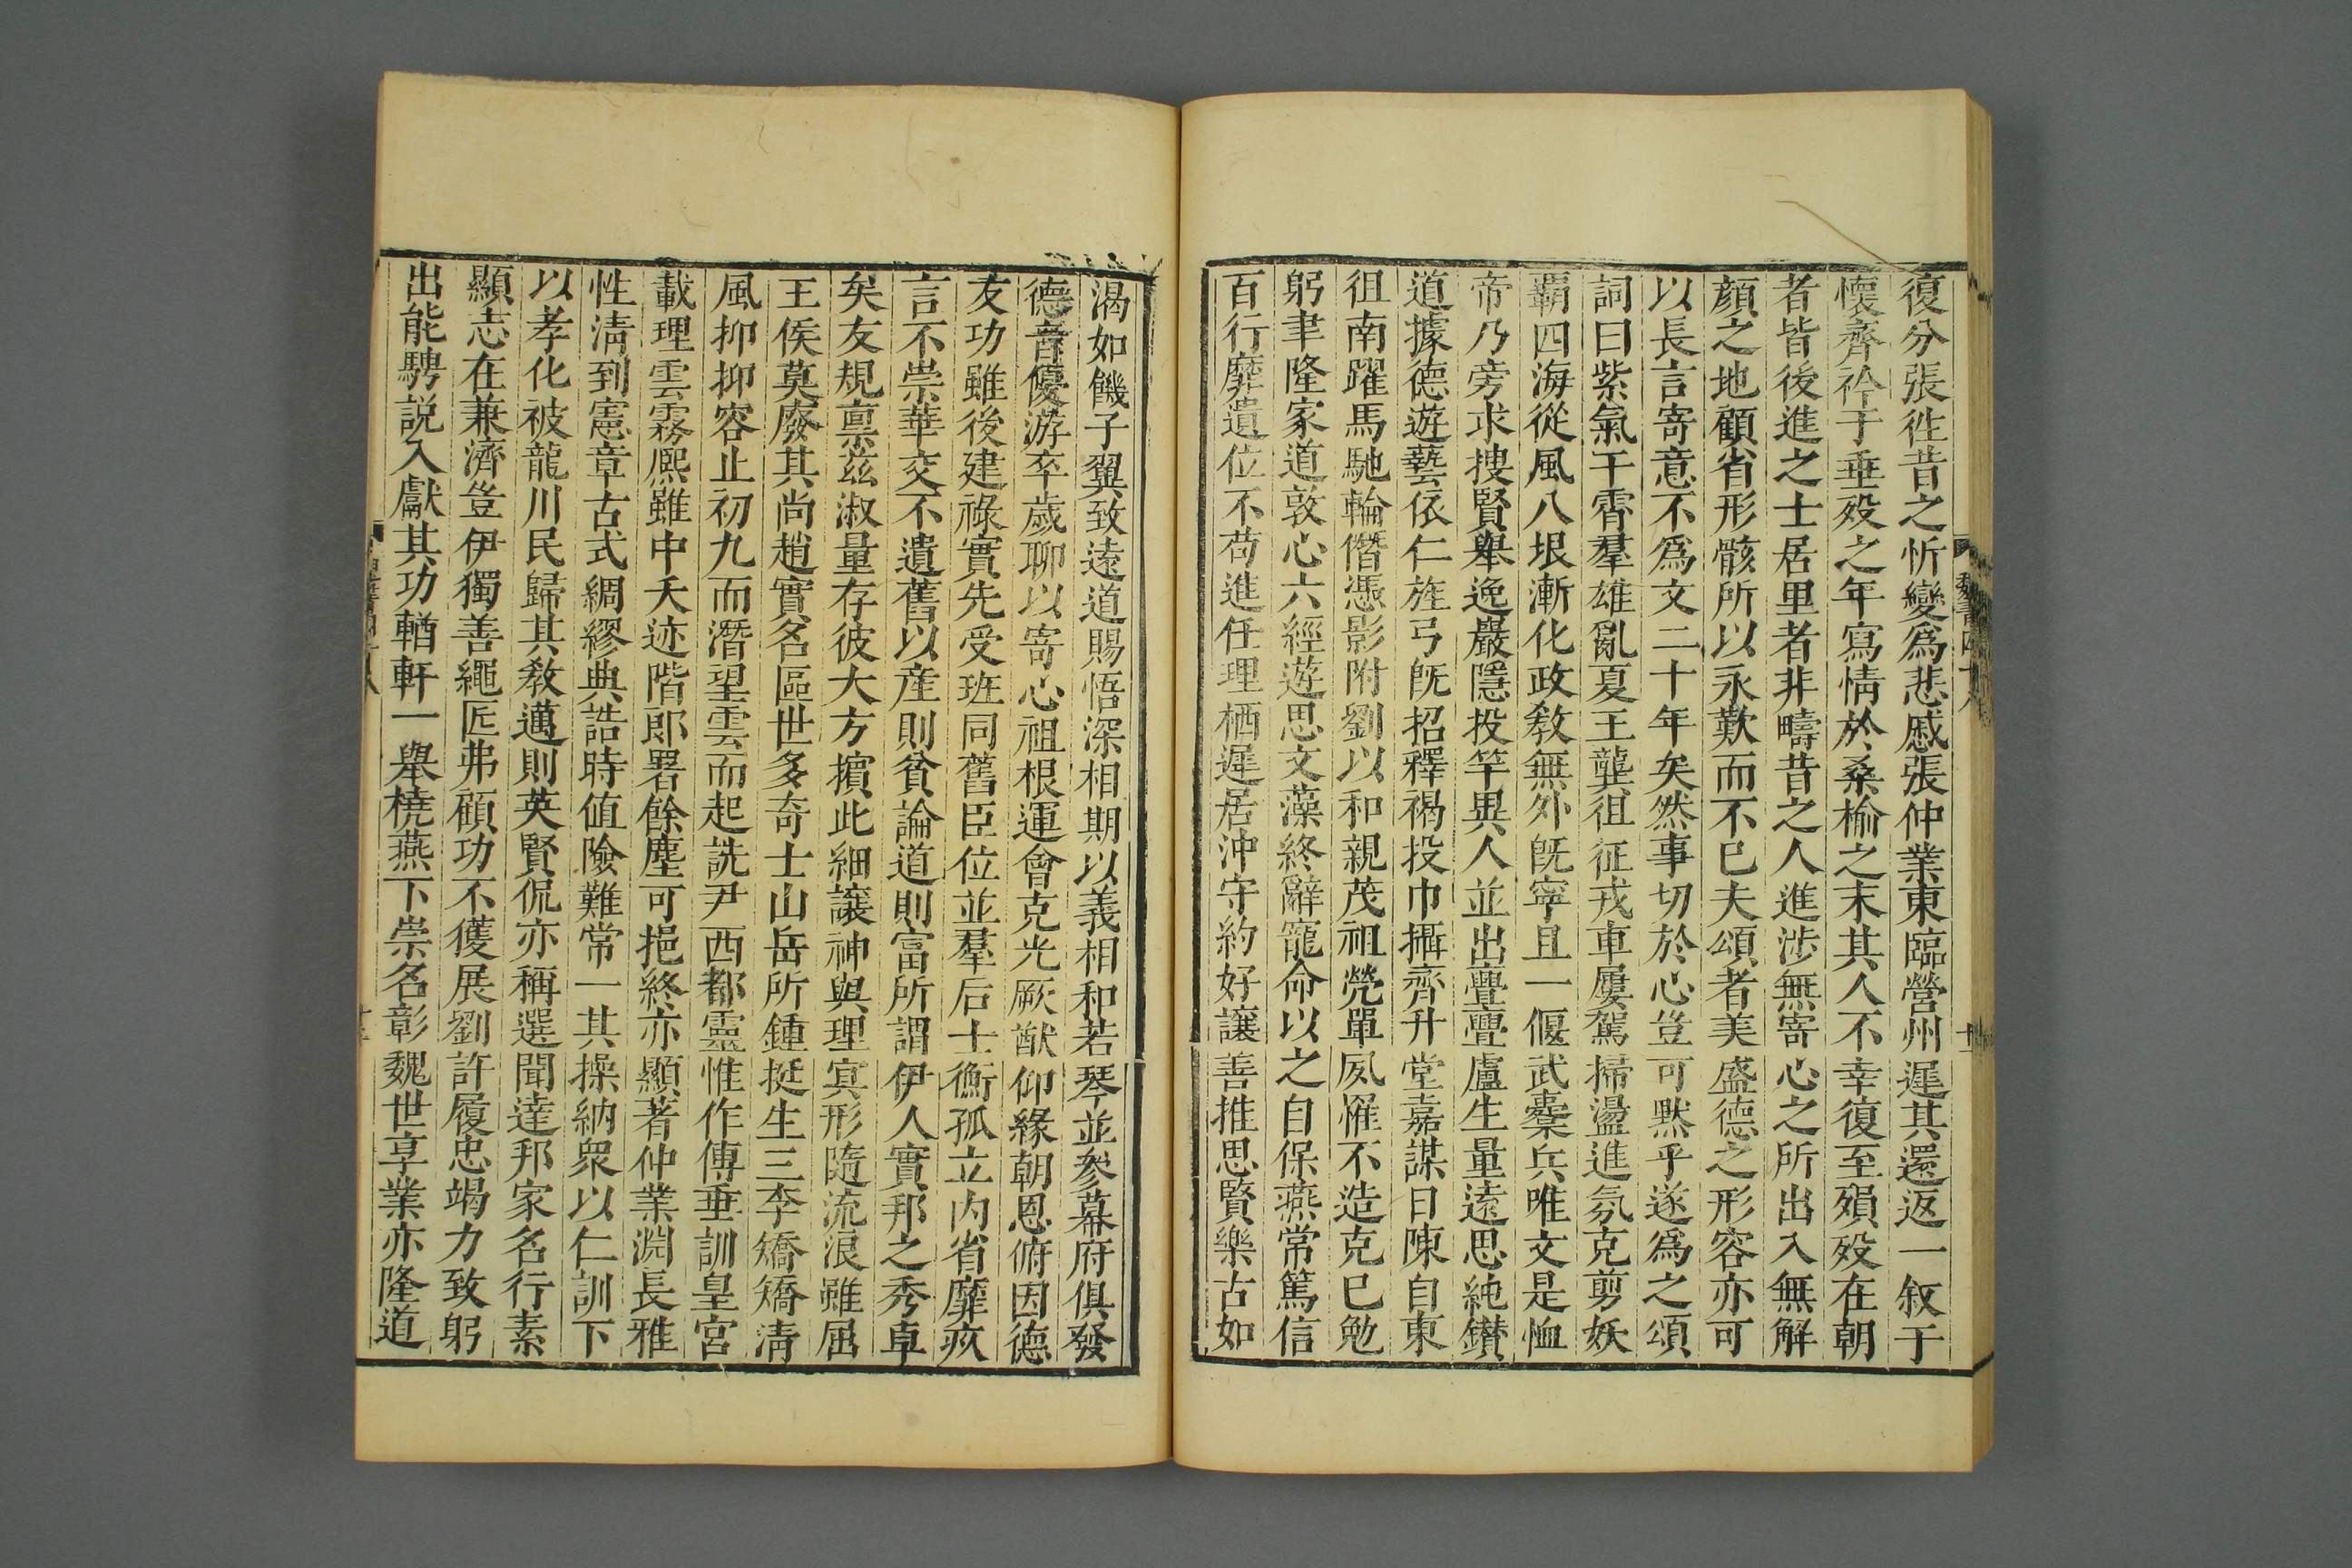 復分張徃昔之忻變爲悲戚張仲業東臨營州遲其還返一叙于
懷齊衿于垂歿之年寫情於桑榆之末其人不幸復至殞歿在朝
者皆後進之士居里者非疇昔之人進涉無寄心之所出入無解
顏之地顧省形骸所以永歎而不已夫頌者美盛德之形容亦可
以長言寄意不爲文二十年矣然事切於心豈可默乎遂爲之頌
詞曰紫氣干霄羣雄亂夏王龔徂征戎車屢駕掃盪進氛克剪妖
霸四海從風八垠漸化政敎無外旣寧且一偃武櫜兵唯文是恤
帝乃旁求搜賢舉逸巖隱投竿異人並出亹亹盧生量遠思純鑚
道據德遊藝依仁旌弓旣招釋褐投巾攝齊升堂嘉謀日陳自東
徂南躍馬馳輪僭憑影附劉以和親茂祖煢單夙罹不造克巳勉
躬聿隆家道敦心六經遊思文藻終辭寵命以之自保燕常篤信
百行靡遺位不苟進任理栖遲居沖守約好讓善推思賢樂古如
魏書四十八
渴如饑子翼致遠道賜悟深相期以義相和若琴並參幕府俱發
德音優游卒歲聊以寄心祖根運會克光厥猷仰緣朝恩俯因德
友功雖後建祿實先受班同舊臣位並羣后士衡孤立内省靡疚
言不崇華交不遺舊以産則貧論道則富所謂伊人實邦之秀卓
矣友規禀茲淑量存彼大方擯此細讓神與理冥形隨流浪雖屈
王侯莫廢其尚趙實名區世多奇士山岳所鍾挺生三李矯矯清
風抑抑容止初九而潛望雲而起詵尹西都靈惟作傅垂訓皇宮
載理雲霧熙雖中夭迹階郎署餘塵可挹終亦顯著仲業淵長雅
性淸到憲章古式綢繆典誥時值險難常一其操納衆以仁訓下
以孝化被龍川民歸其敎邁則英賢侃亦稱選聞達邦家名行素
顯志在兼濟豈伊獨善繩匠弗顧功不獲展劉許履忠竭力致躬
出能騁説入獻其功輶軒一舉橈燕下崇名彰魏世享業亦隆道